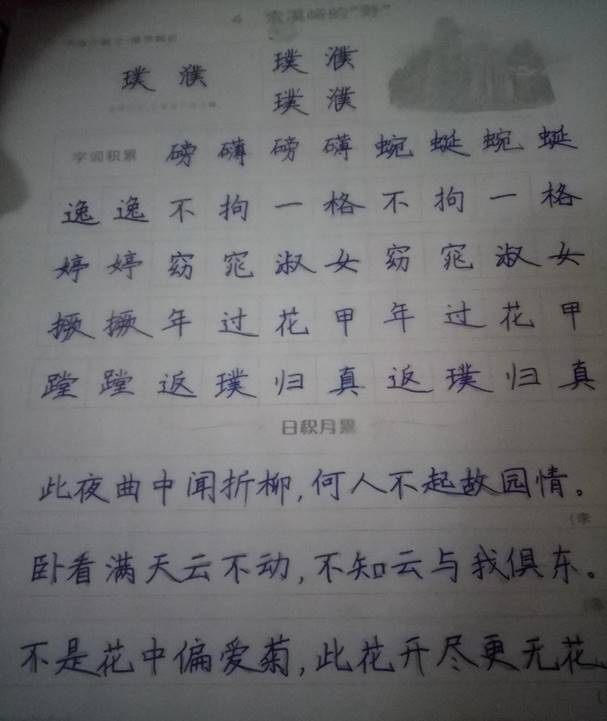 4 索溪峪的“野”
璞 濮 璞 濮
璞 濮
字词积累 磅 礴 磅 礴 蜿 蜒 蜿 蜒
逸 逸 不 拘 一 格 不 拘 一 格
婷 婷 窈 窕 淑 女 窈 窕 淑 女
撅 撅 年 过 花 甲 年 过 花 甲
蹚 蹚 返 璞 归 真 返 璞 归 真
日积月累
此夜曲中闻折柳,何人不起故园情。
(李
卧看满天云不动,不知云与我俱东。
不是花中偏爱菊,此花开尽更无花